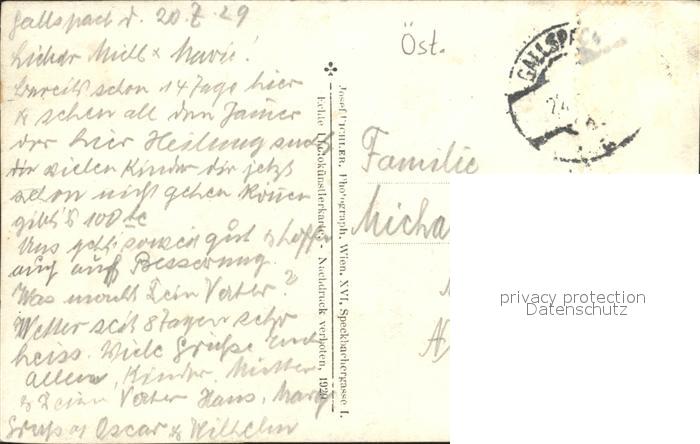 Gallspach d. 20.7.29
Lieber Michl & Marie!
bereits schon 14 Tage hier
& sehen all den Jamer
der hier Heilung sucht
die vielen Kinder die jetzt
schon nicht gehen können
gibt's 100te
Uns geht soweit gut & hoffen
auch auf Besserung.
Was macht Dein Vater?
Wetter seit 8 Tagen sehr
heiss. Viele Grüße Euch
allen, Kinder, Mutter
& Deinen Vater Hans, Mary
Gruß Oscar & Wilhelm
Josef PICHLER, Photograph, Wien, XVI, Speckbachergasse 1.
Echte Photokünstlerkarte. Nachdruck verboten, 1929
Öst.
GALLSPACH
Familie
Micha
privacy protection
Datenschutz